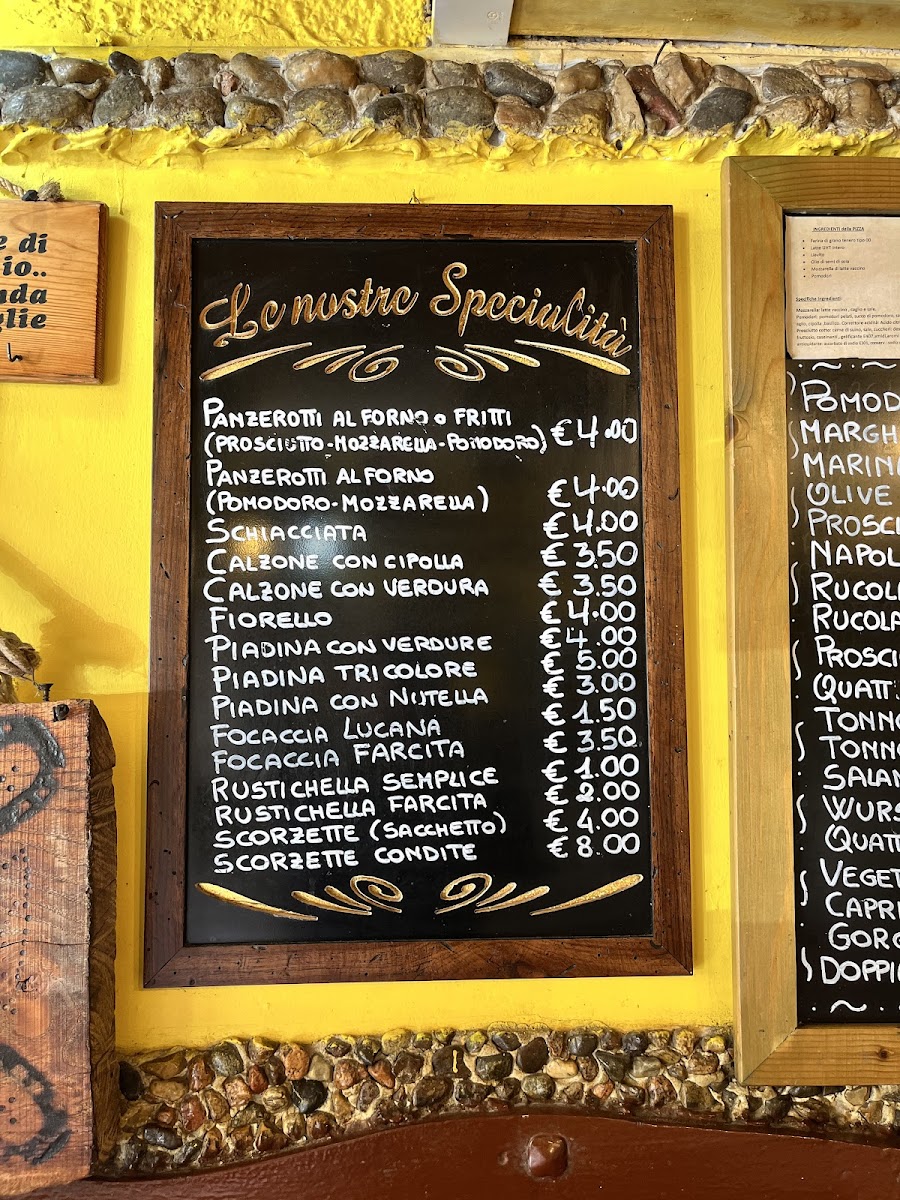 e di
io..
nda
glie
Le nostre Specialità
PANZEROTTI AL FORNO O FRITTI
(PROSCIUTTO-MOZZARELLA-POMODORO) € 4.00
PANZEROTTI AL FORNO
(POMODORO-MOZZARELLA) € 4.00
SCHIACCIATA € 4.00
CALZONE CON CIPOLLA € 3.50
CALZONE CON VERDURA € 3.50
FIORELLO € 4.00
PIADINA CON VERDURE € 4.00
PIADINA TRICOLORE € 5.00
PIADINA CON NUTELLA € 3.00
FOCACCIA LUCANA € 1.50
FOCACCIA FARCITA € 3.50
RUSTICHELLA SEMPLICE € 1.00
RUSTICHELLA FARCITA € 2.00
SCORZETTE (SACCHETTO) € 4.00
SCORZETTE CONDITE € 8.00
INGREDIENTI della PIZZA
Farina di grano tenero tipo 00
Latte UHT intero
Lievito
Olio di semi di soia
Mozzarella di latte vaccino
Pomodori
Specifiche Ingredienti
POMOD
MARGH
MARINA
OLIVE
PROSCI
NAPOL
RUCOL
RUCOLA
PROSCI
QUATT
TONNO
TONNO
SALAM
WURS
QUATT
VEGET
CAPRI
GORG
DOPPI